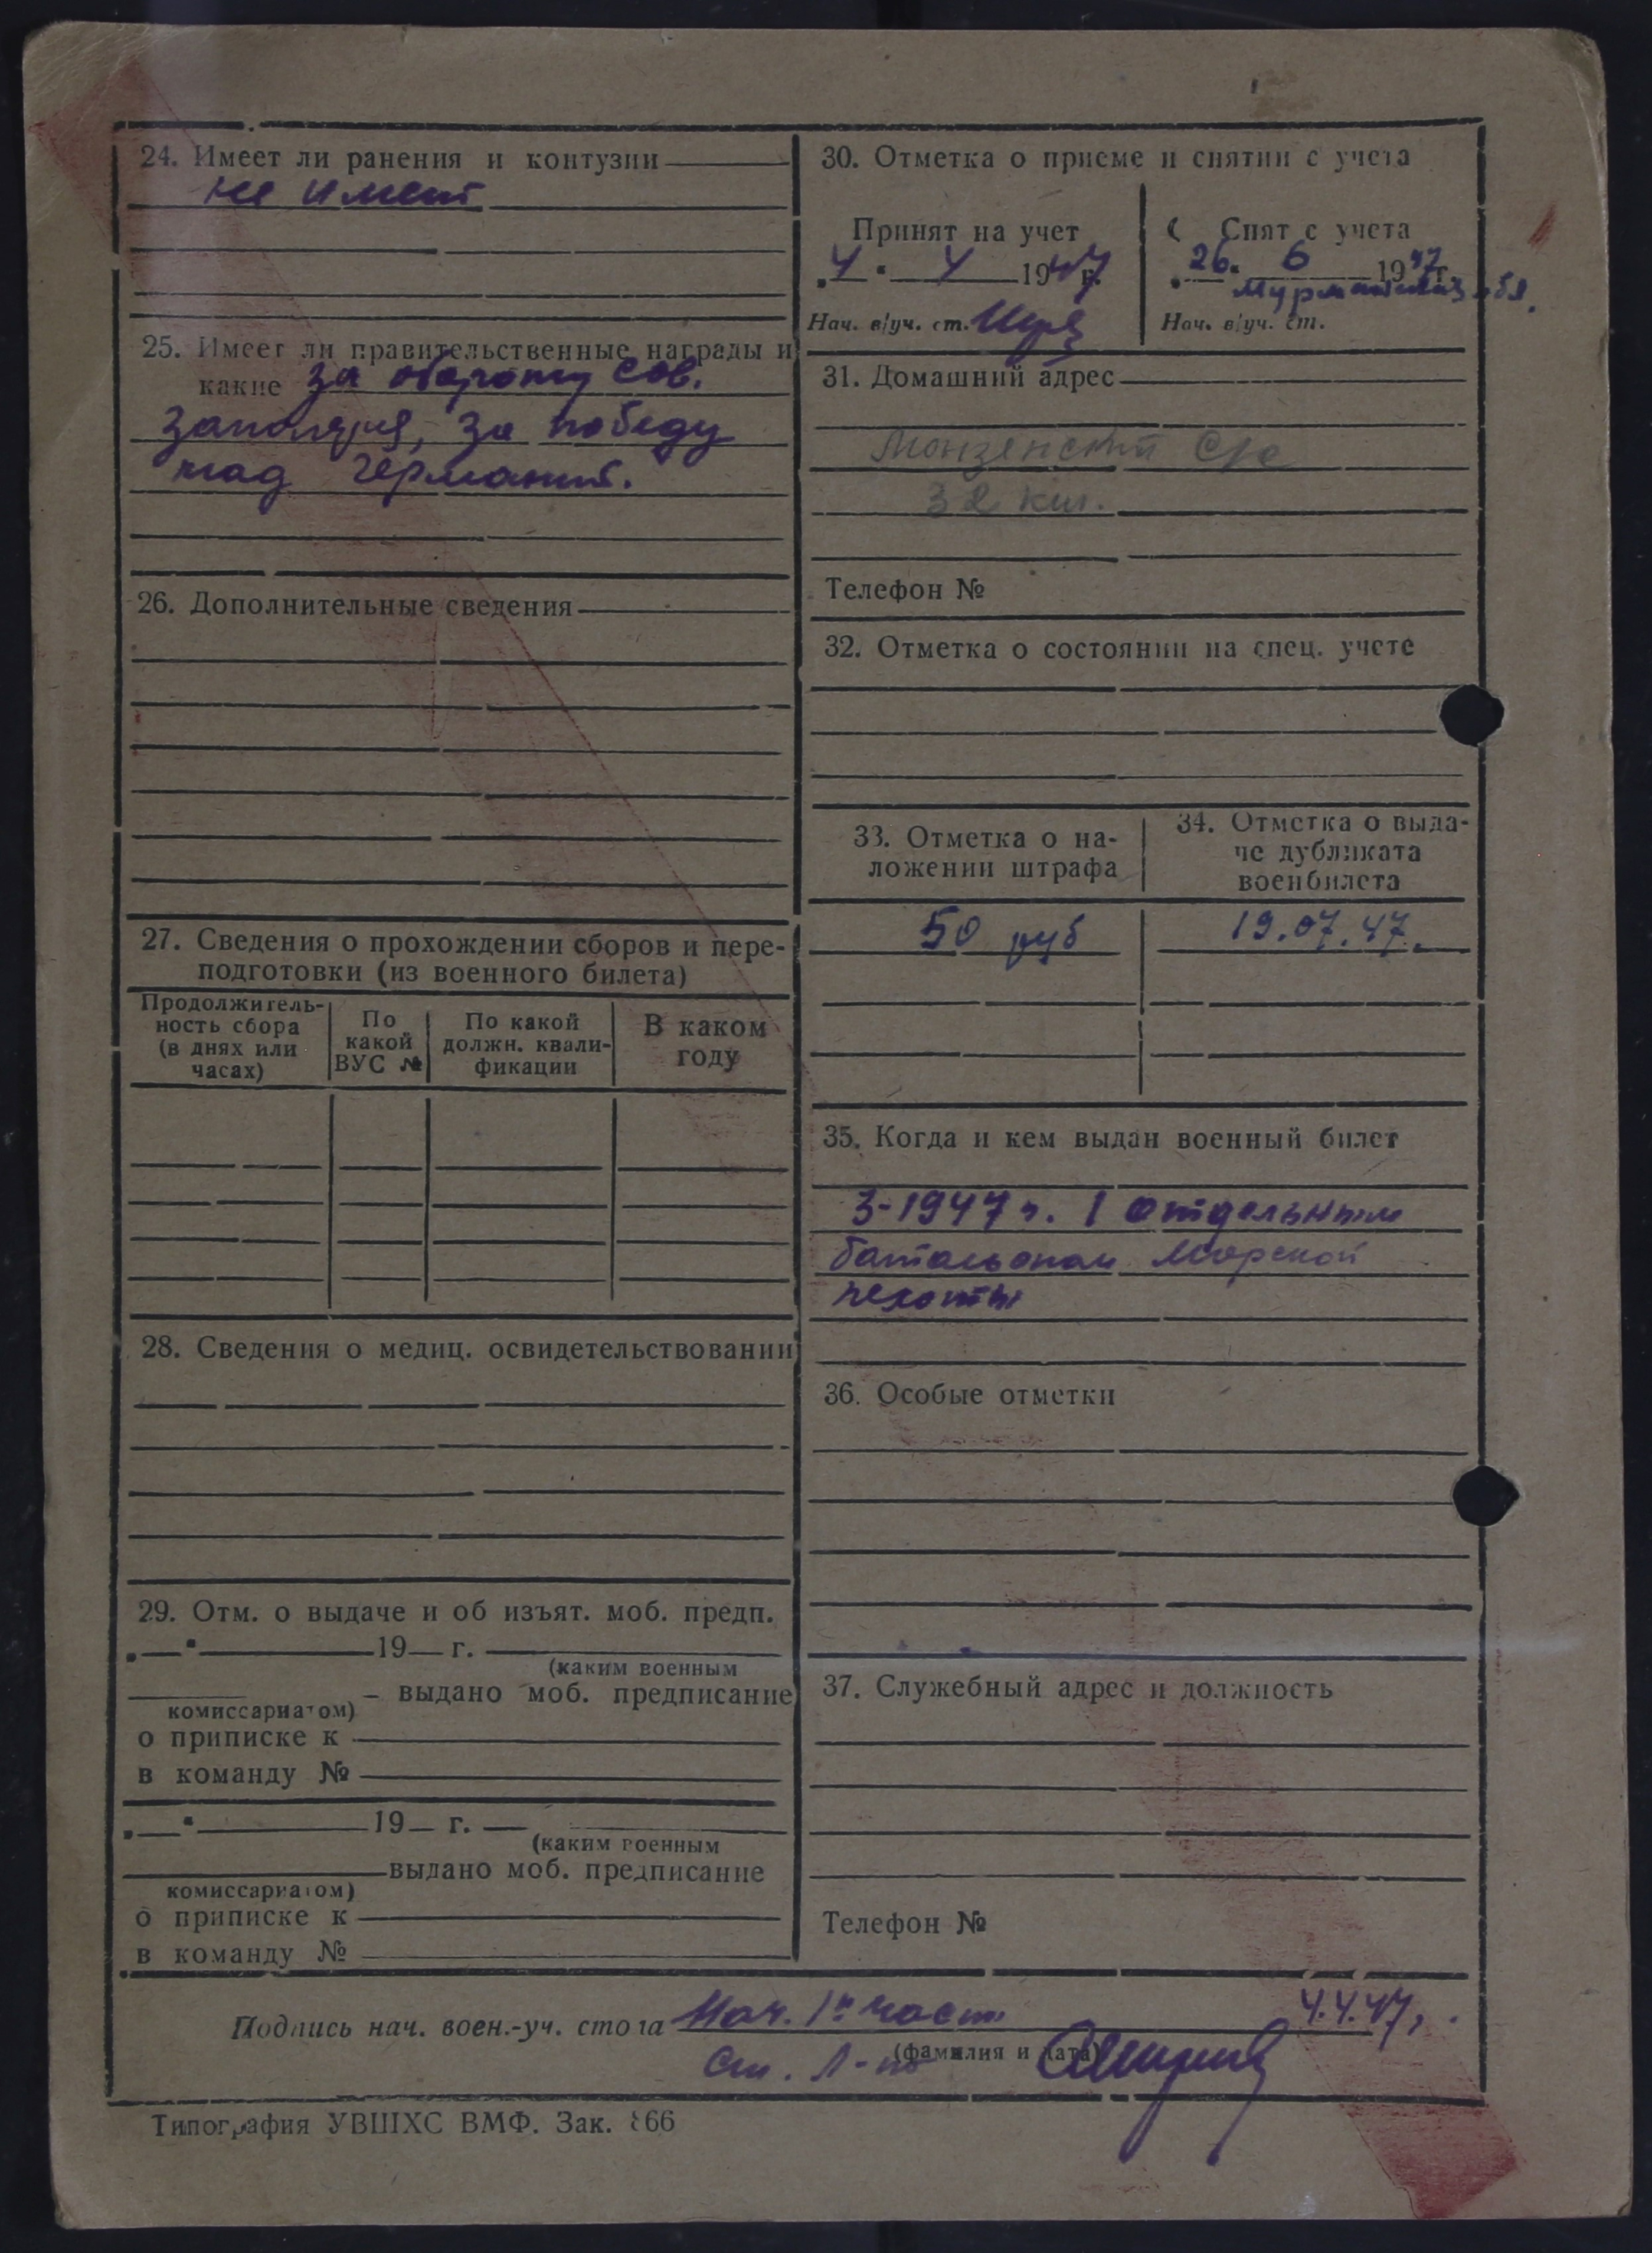 24. Имеет ли ранения и контузии
не имеет
25. Имеет ли правительственные награды и
какие за оборону Сов.
Заполярья, за победу
над Германией.
26. Дополнительные сведения
27. Сведения о прохождении сборов и пере-
подготовки (из военного билета)
Продолжитель-
ность сбора
(в днях или
часах)
По
какой
ВУС №
По какой
должн. квали-
фикации
В каком
году
28. Сведения о медиц. освидетельствовании
29. Отм. о выдаче и об изъят. моб. предп.
„ “ 19 г.
(каким военным
выдано моб. предписание
комиссариатом)
о приписке к
в команду №
„ “ 19 г.
(каким военным
выдано моб. предписание
комиссариатом)
о приписке к
в команду №
30. Отметка о приеме и снятии с учета
Принят на учет
4 4 1947 г.
Нач. в/уч. ст.
Снят с учета
26. 6 1947 г.
обл.
Нач. в/уч. ст.
31. Домашний адрес
32 км.
Телефон №
32. Отметка о состоянии на спец. учете
33. Отметка о на-
ложении штрафа
50 руб
34. Отметка о выда-
че дубликата
военбилета
19.07.47.
35. Когда и кем выдан военный билет
3-1947 г. 1 отдельным
батальоном Морской
пехоты
36. Особые отметки
37. Служебный адрес и должность
Телефон №
Подпись нач. воен.-уч. стола Нач. 1й части 4.4.47г.
(фамилия и дата)
Ст. л-т
Типография УВШХС ВМФ. Зак. 866